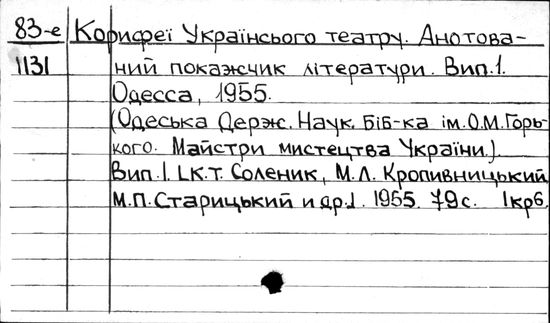 83-е Корифеї Українсього театру. Анотова-
1131 ний покажчик літератури. Вип.1.
Одесса, 1955.
(Одеська Держ. Наук. Біб-ка ім.О.М.Горь-
кого. Майстри мистецтва України.)
Вип.1. [К.Т. Соленик, М.Л. Кропивницький
М.П. Старицький и др.]. 1955. 79с. 1кр6.